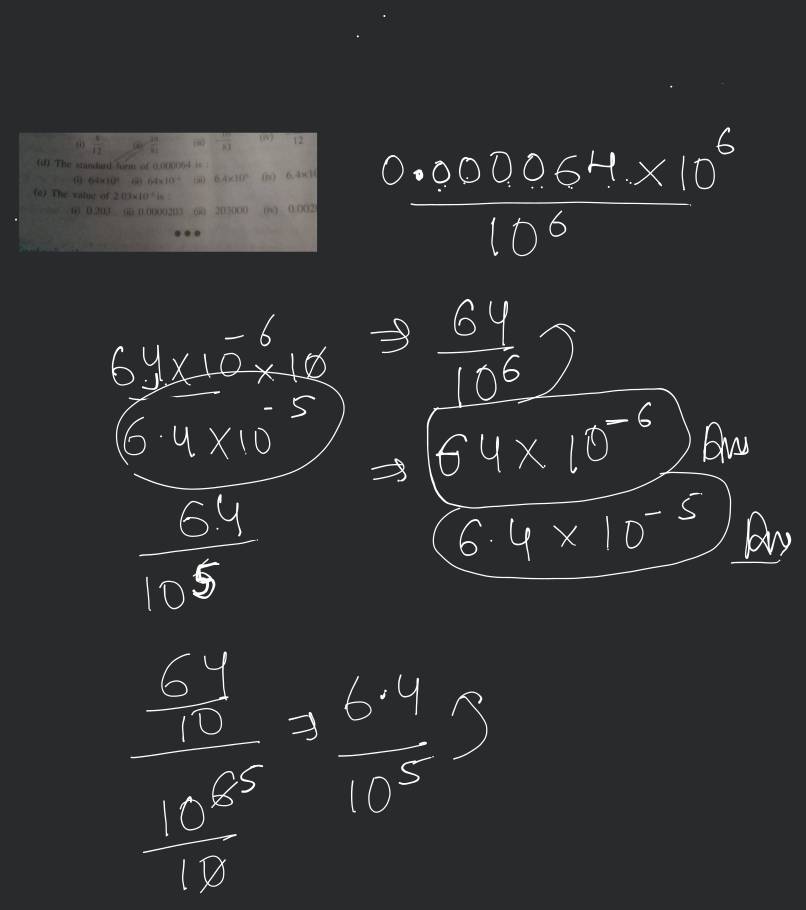 (i) 12 (ii) 81 (iii) 83 (iv) 12
(d) The standard form of 0.000064 is :
(i) 64×10⁶ (ii) 64×10⁻⁶ (iii) 6.4×10⁶ (iv) 6.4×1
(e) The value of 2.03×10⁻⁵ is :
(i) 0.203 (ii) 0.0000203 (iii) 203000 (iv) 0.002
0.000064.×10⁶
10⁶
64×10⁻⁶×10
⇒ 64
10⁶
6.4×10⁻⁵
⇒ 64×10⁻⁶ Ans
6.4×10⁻⁵ Ans
64
10⁵
64
10
⇒ 6.4
10⁵
10⁶⁵
10